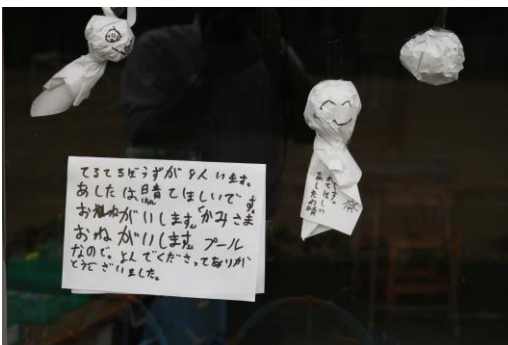 てるてるぼうずが9人います。
あしたは晴てほしいです。
おねがいします。かみさま
おねがいします。プール
なので。よんでくださってありが
とうございました。
あしたわ晴